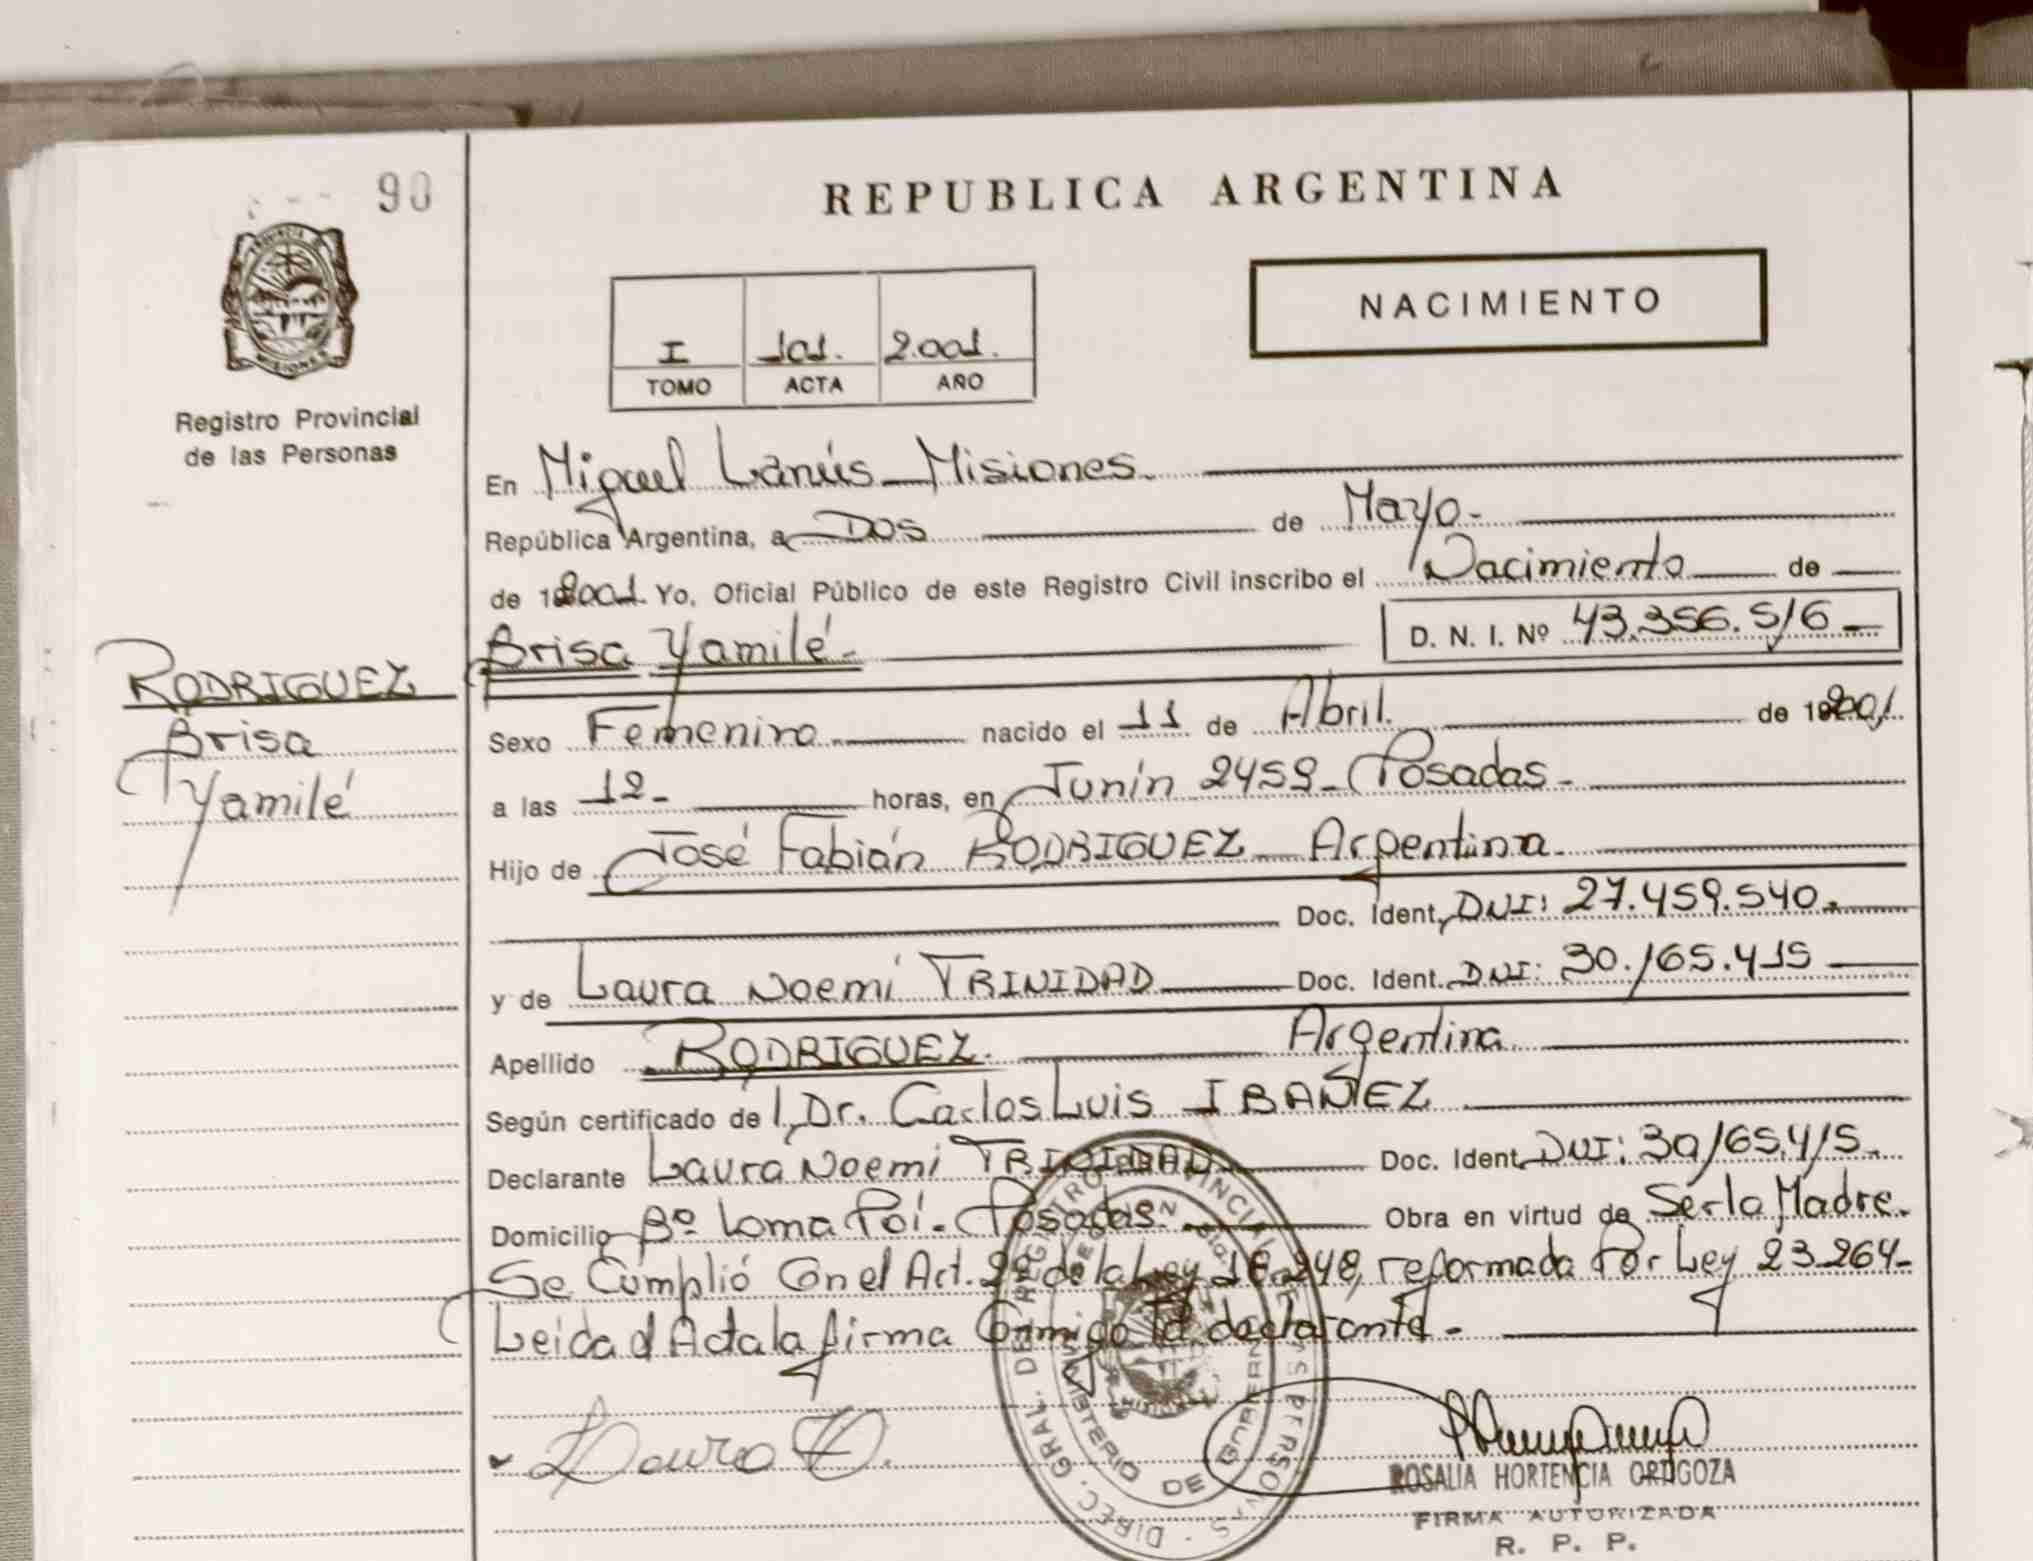 90
REPUBLICA ARGENTINA
NACIMIENTO
I 101. 2.001.
TOMO ACTA AÑO
Registro Provincial
de las Personas
En Miguel Lanús - Misiones.
República Argentina, a Dos de Mayo.
de 2001. Yo, Oficial Público de este Registro Civil inscribo el Nacimiento de
Brisa Yamilé. D. N. I. Nº 43.356.516
RODRIGUEZ
Brisa
Yamilé
Sexo Femenino nacido el 11 de Abril. de 2001.
a las 12 - horas, en Junín 2459 - Posadas -
Hijo de José Fabián RODRIGUEZ - Argentina.
Doc. Ident. DNI: 27.459.540.
y de Laura Noemí TRINIDAD Doc. Ident. DNI: 30.165.415
Apellido RODRIGUEZ. Argentina
Según certificado de Dr. Carlos Luis IBAÑEZ
Declarante Laura Noemí TRINIDAD Doc. Ident. DNI: 30.165.415.
Domicilio Bº Loma Poí - Posadas. Obra en virtud de Ser la Madre.
Se Cumplió Con el Art. 2º de la Ley 18.248, reformada Por Ley 23.264 -
Leida el Acta la firma Conmigo la declarante -
Laura
ROSALIA HORTENCIA ORTIGOZA
FIRMA AUTORIZADA
R. P. P.
DIREC. GRAL. DE REGISTRO PROVINCIAL DE LAS PERSONAS
MINISTERIO DE GOBIERNO